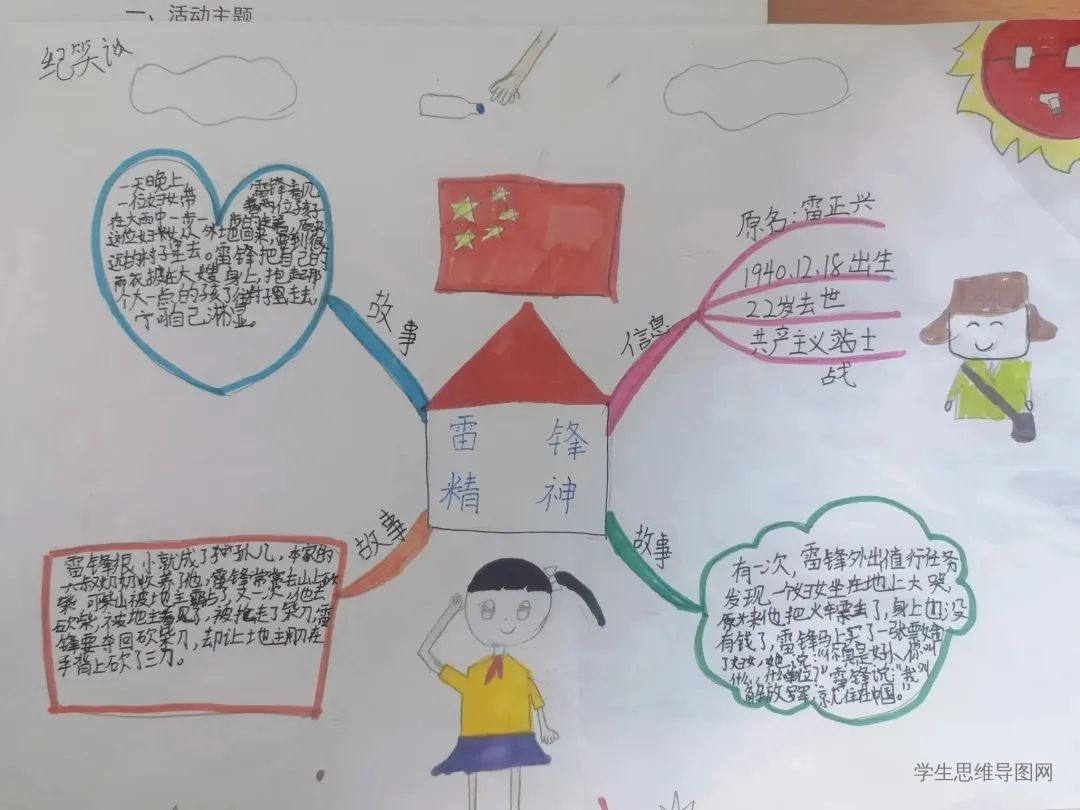 一、活动主题
纪笑
一天晚上
雷锋看见
一位妇女带
着两位孩子
在大雨中一步一步的走着,原来
这位妇女从外地回来,要到很
远的村子里去。雷锋把自己的
雨衣披在大嫂身上,抱起那
个大一点的孩子往村子里走去,
宁可自己淋湿。
故事
信息
原名:雷正兴
1940.12.18出生
22岁去世
共产主义 士
战
雷 锋
精 神
故事
雷锋很小就成了孤儿,本家的
六叔奶奶收养了他,雷锋常常去山上砍
柴,可柴山被地主霸占了,又一次,他去
砍柴,被地主看见了,被抢走了柴刀,雷
锋要夺回砍柴刀,却让地主用刀在
手背上砍了三刀。
故事
有一次,雷锋外出值行任务
发现一个妇女坐在地上大哭,
原来他把火车票丢了,身上也没
有钱了,雷锋马上买了一张票给
了妇女,她说“你真是好人,你叫
什么,什么单位?”雷锋说“我叫
解放军,就住在中国。”
学生思维导图网